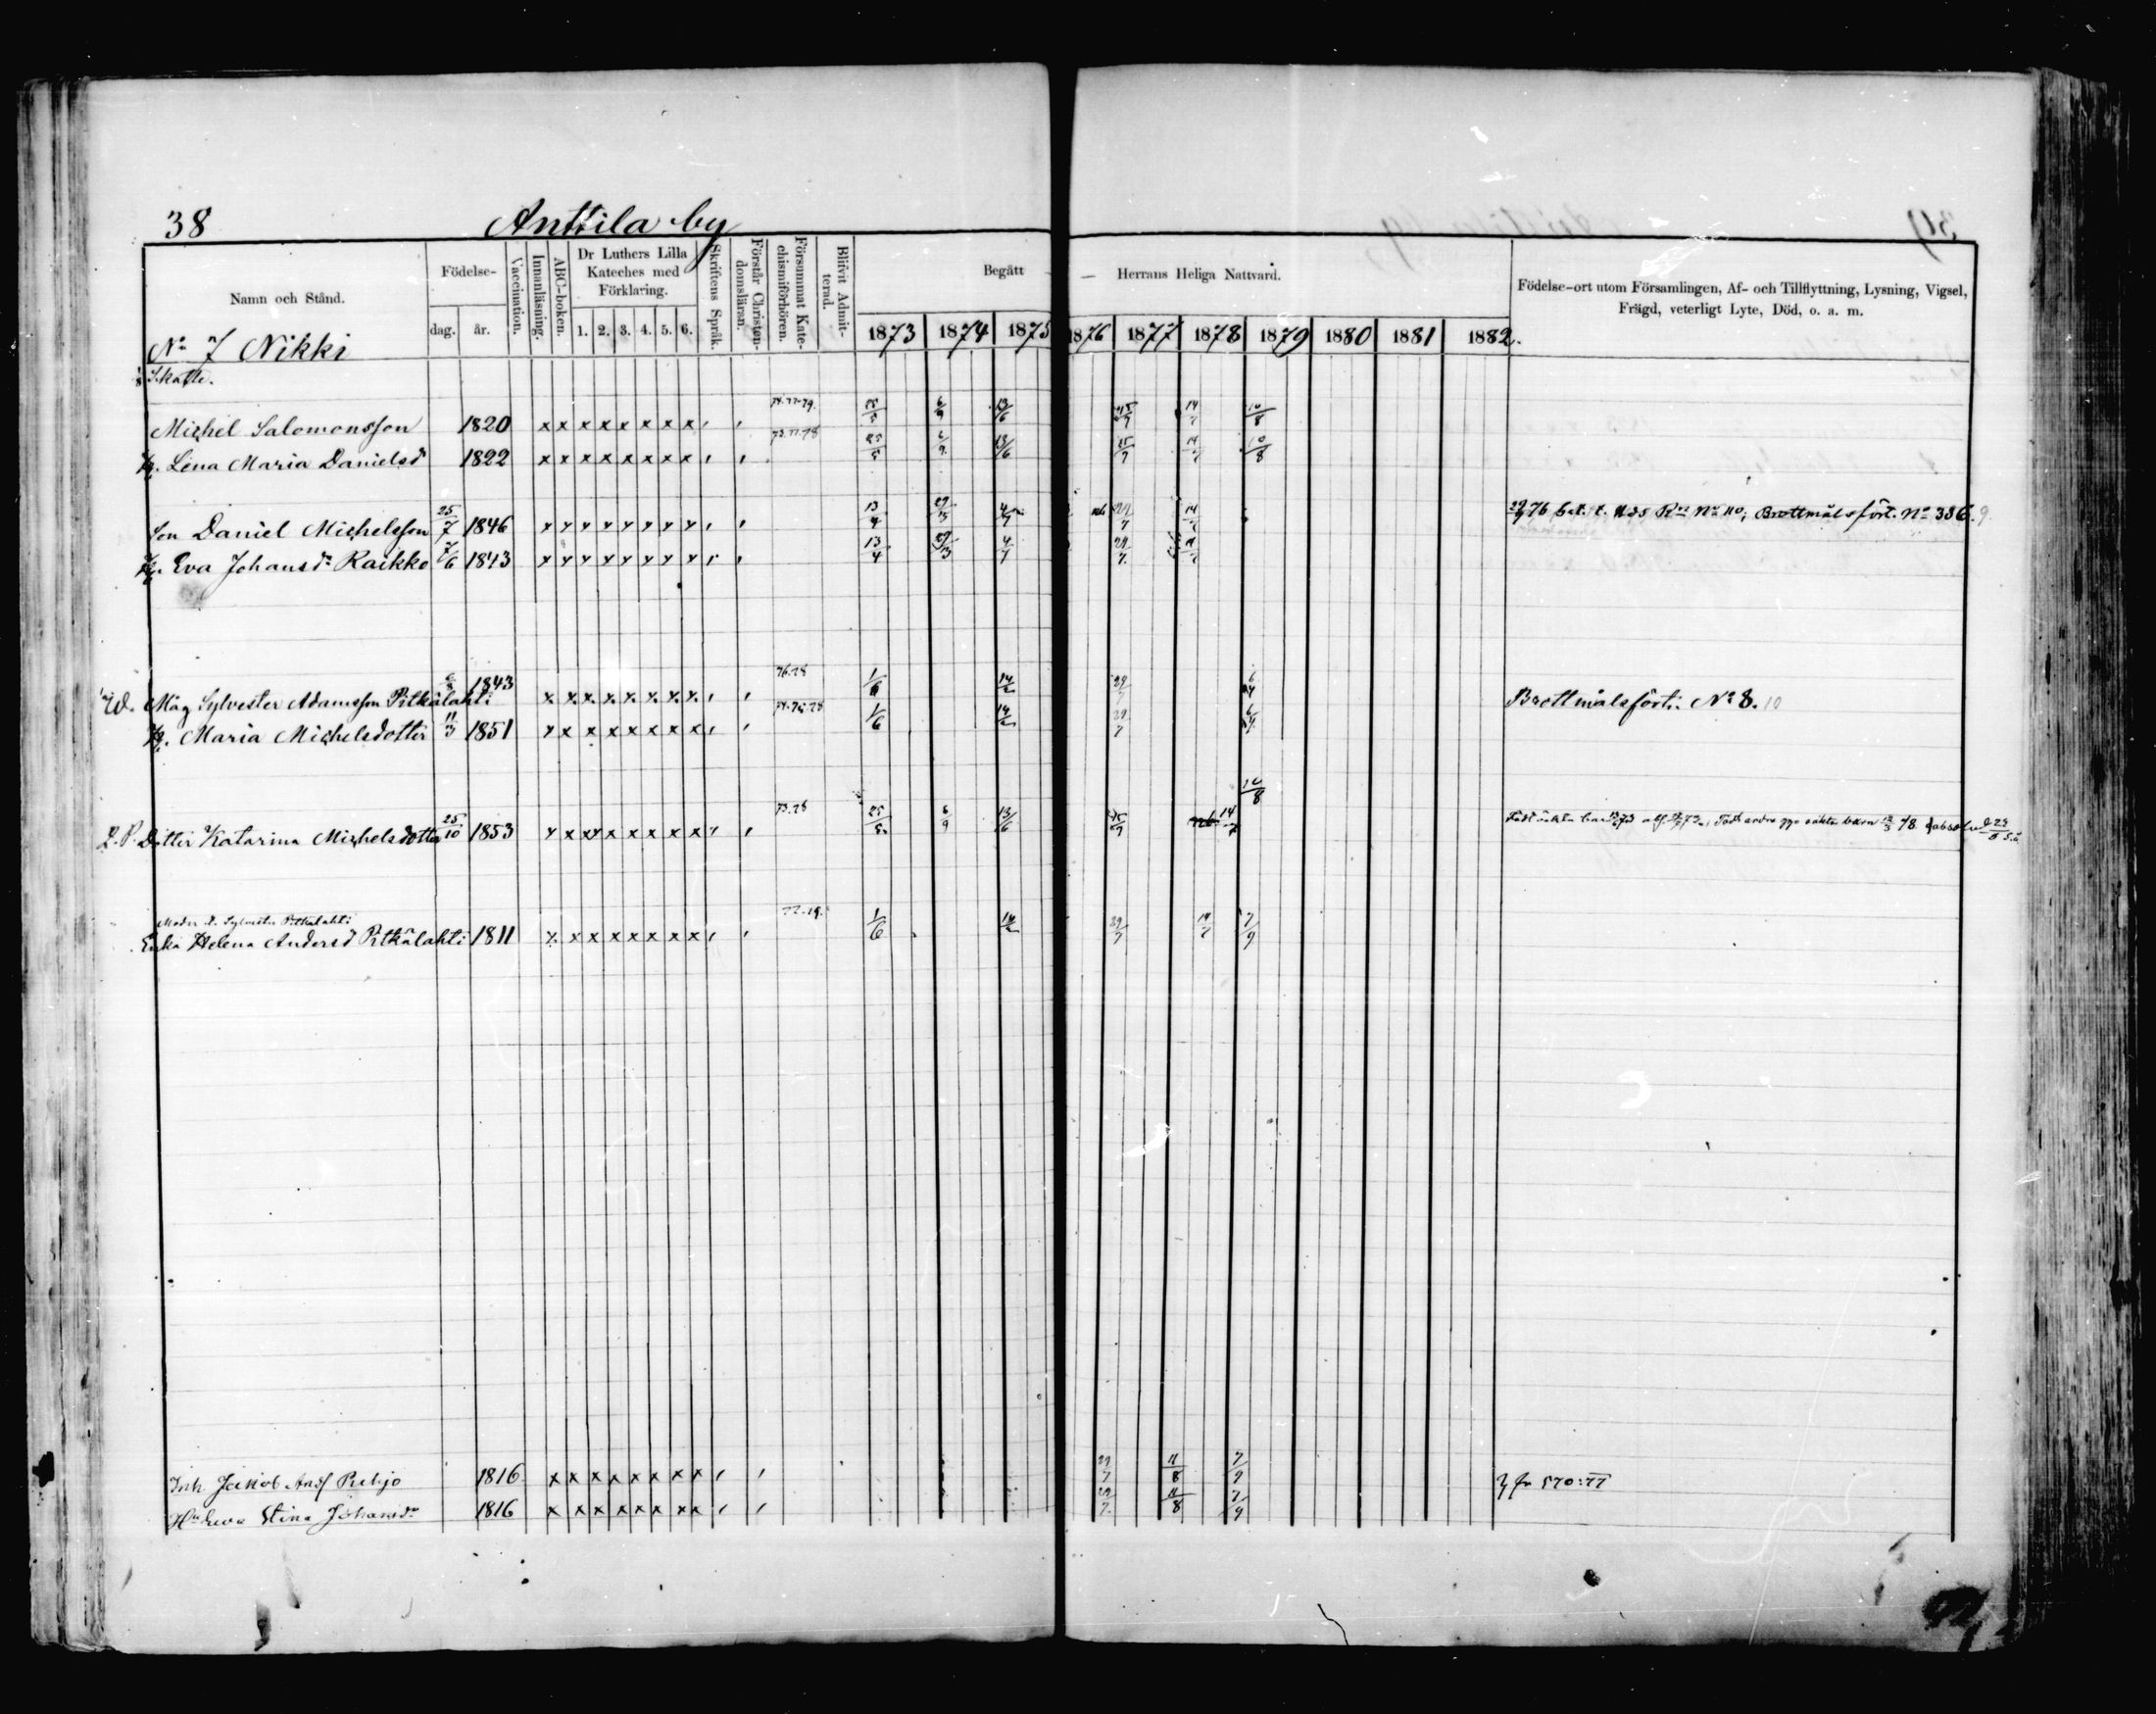 38 Anttila by
Namn och Stånd. Födelse- dag. år. Vaccination. Innanläsning. ABC-boken. Dr Luthers Lilla Kateches med Förklaring. 1. 2. 3. 4. 5. 6. Skriftens Språk. Förstår Christendomsläran. Försummat Katechismiförhören. Blifvit Admitterad. Begått — Herrans Heliga Nattvard. 1873 1874 1875 1876 1877 1878 1879 1880 1881 1882. Födelse-ort utom Församlingen, Af- och Tillflyttning, Lysning, Vigsel, Frägd, veterligt Lyte, Död, o. a. m.
No 7 Nikki
Skatte.
Michel Salomonsson 1820 x x x x x x x x 74.77.79. 25/5 6/9 13/6 15/7 14/7 10/8
Lena Maria Danielsd 1822 x x x x x x x x 73.77.78 25/5 6/9 13/6 15/7 14/7 10/8
Son Daniel Michelsson 25/7 1846 x x x x x x x x 13/4 29/3 4/7 29/7 14/7 Brottmålsfört. No 386.
Eva Johansdr Raikko 7/6 1843 x x x x x x x x 13/4 29/3 4/7 29/7 14/7
Måg Sylvester Adamsson Pitkälahti 1843 x x x x x x x x 76.78 1/6 14/2 29/7 6/4 Brottmålsfört. No 8. 10
Maria Michelsdotter 11/3 1851 x x x x x x x x 74.76.78 1/6 14/2 29/7 6/4
10/8
Dotter Katarina Michelsdotter 25/10 1853 x x x x x x x x 73.78 25/5 6/9 13/6 15/7 14/7
Moder t. Sylvester Pitkälahti
Helena Andersd Pitkälahti 1811 x x x x x x x x 77.79. 1/6 14/2 29/7 14/7 7/9
Inh Jakob Andf 1816 x x x x x x x x 29/7 11/8 7/9 fr 570:77
Hu Eva Stina Johansdr 1816 x x x x x x x x 29/7 11/8 7/9